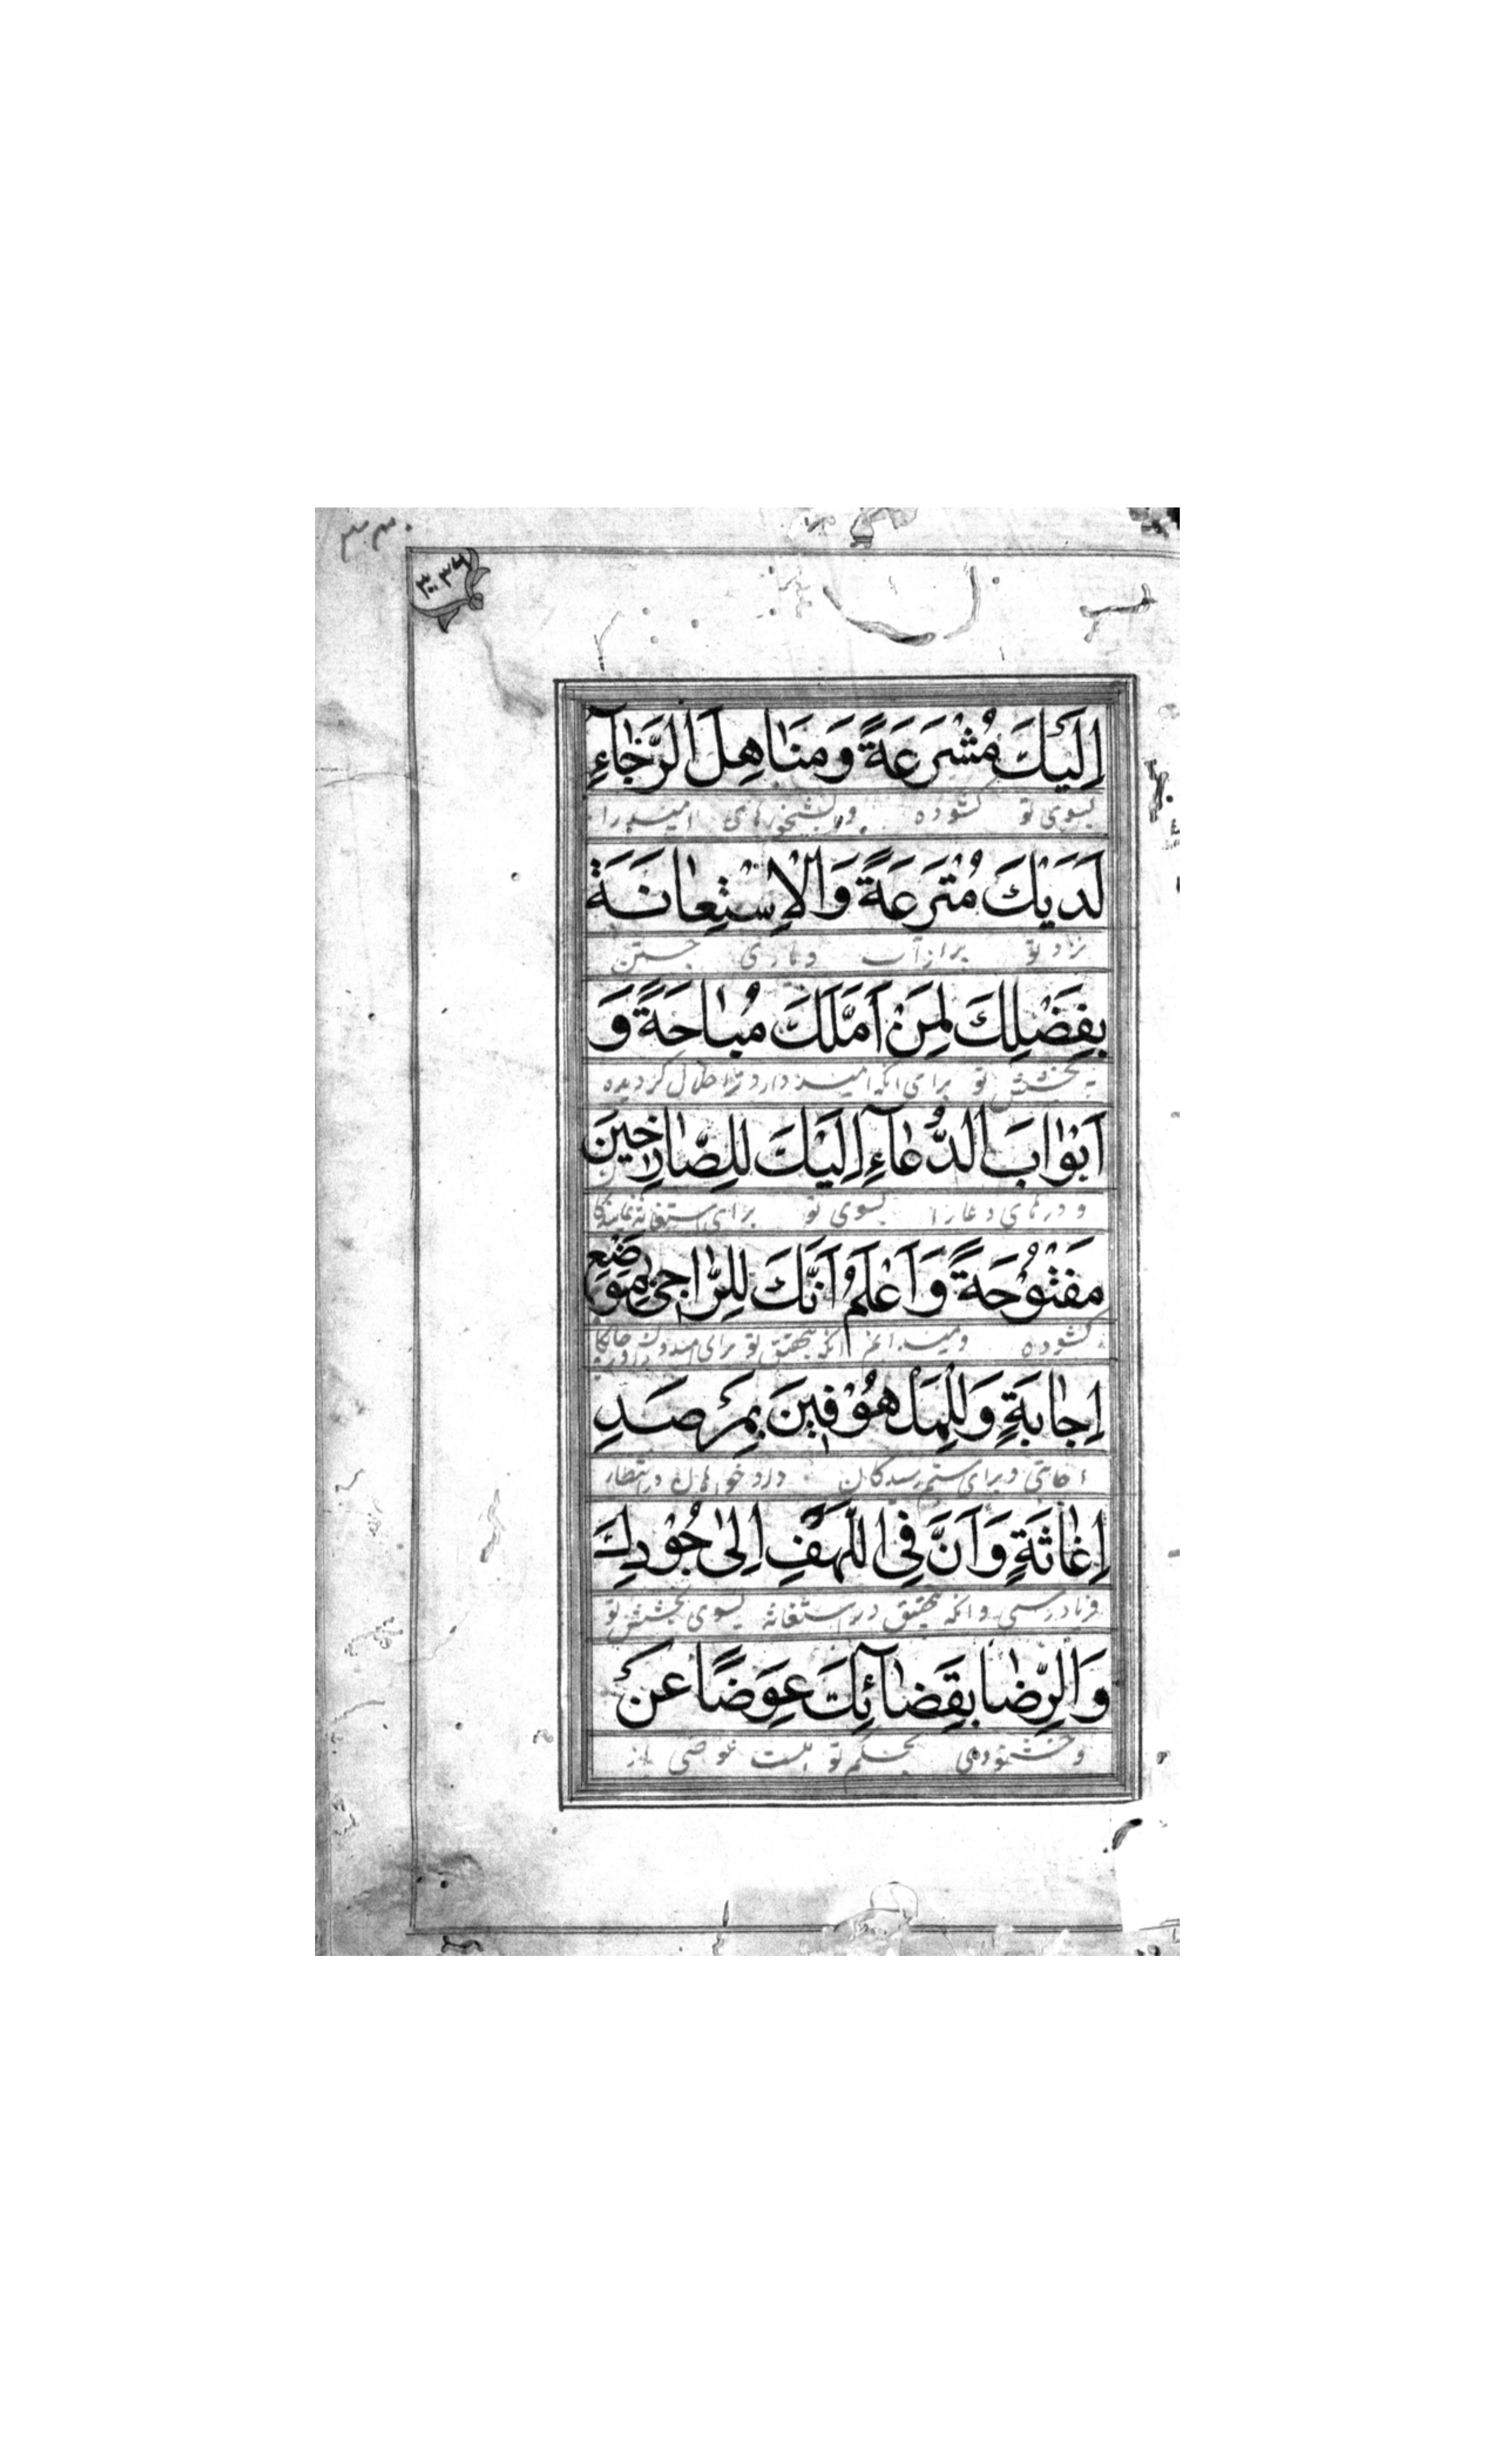 اِلَيْكَ مُشْرَعَةً وَمَنَاهِلَ الرَّجَآءِ
بسوی تو گشوده و آبشخورهای امید را
لَدَيْكَ مُتْرَعَةً وَالْاِسْتِعٰانَةَ
نزد تو پر از آب و یاری جستن
بِفَضْلِكَ لِمَنْ اَمَّلَكَ مُبٰاحَةً وَ
به بخشش تو برای آنکه امید دارد ترا حلال گردیده
اَبْوٰابَ الدُّعٰآءِ اِلَيْكَ لِلصّٰارِخينَ
و درهای دعا را بسوی تو برای استغاثه نمایندگان
مَفْتُوْحَةً وَاَعْلَمُ اَنَّكَ لِلرّٰاجى بِمَوْضِعِ
گشوده و میدانم آنکه بتحقیق تو برای
اِجٰابَةٍ وَلِلْمَلْهُوْفينَ بِمَرْصَدِ
اجابتی و برای ستم رسیدگان در انتظار
اِغٰاثَةٍ وَاَنَّ فِى اللَّهْفِ اِلٰى جُوْدِكَ
فریادرسی و آنکه بتحقیق در استغاثه بسوی بخشش تو
وَالرِّضٰا بِقَضٰآئِكَ عِوَضًا عَنْ
و خشنودی بحکم تو هست عوضی از